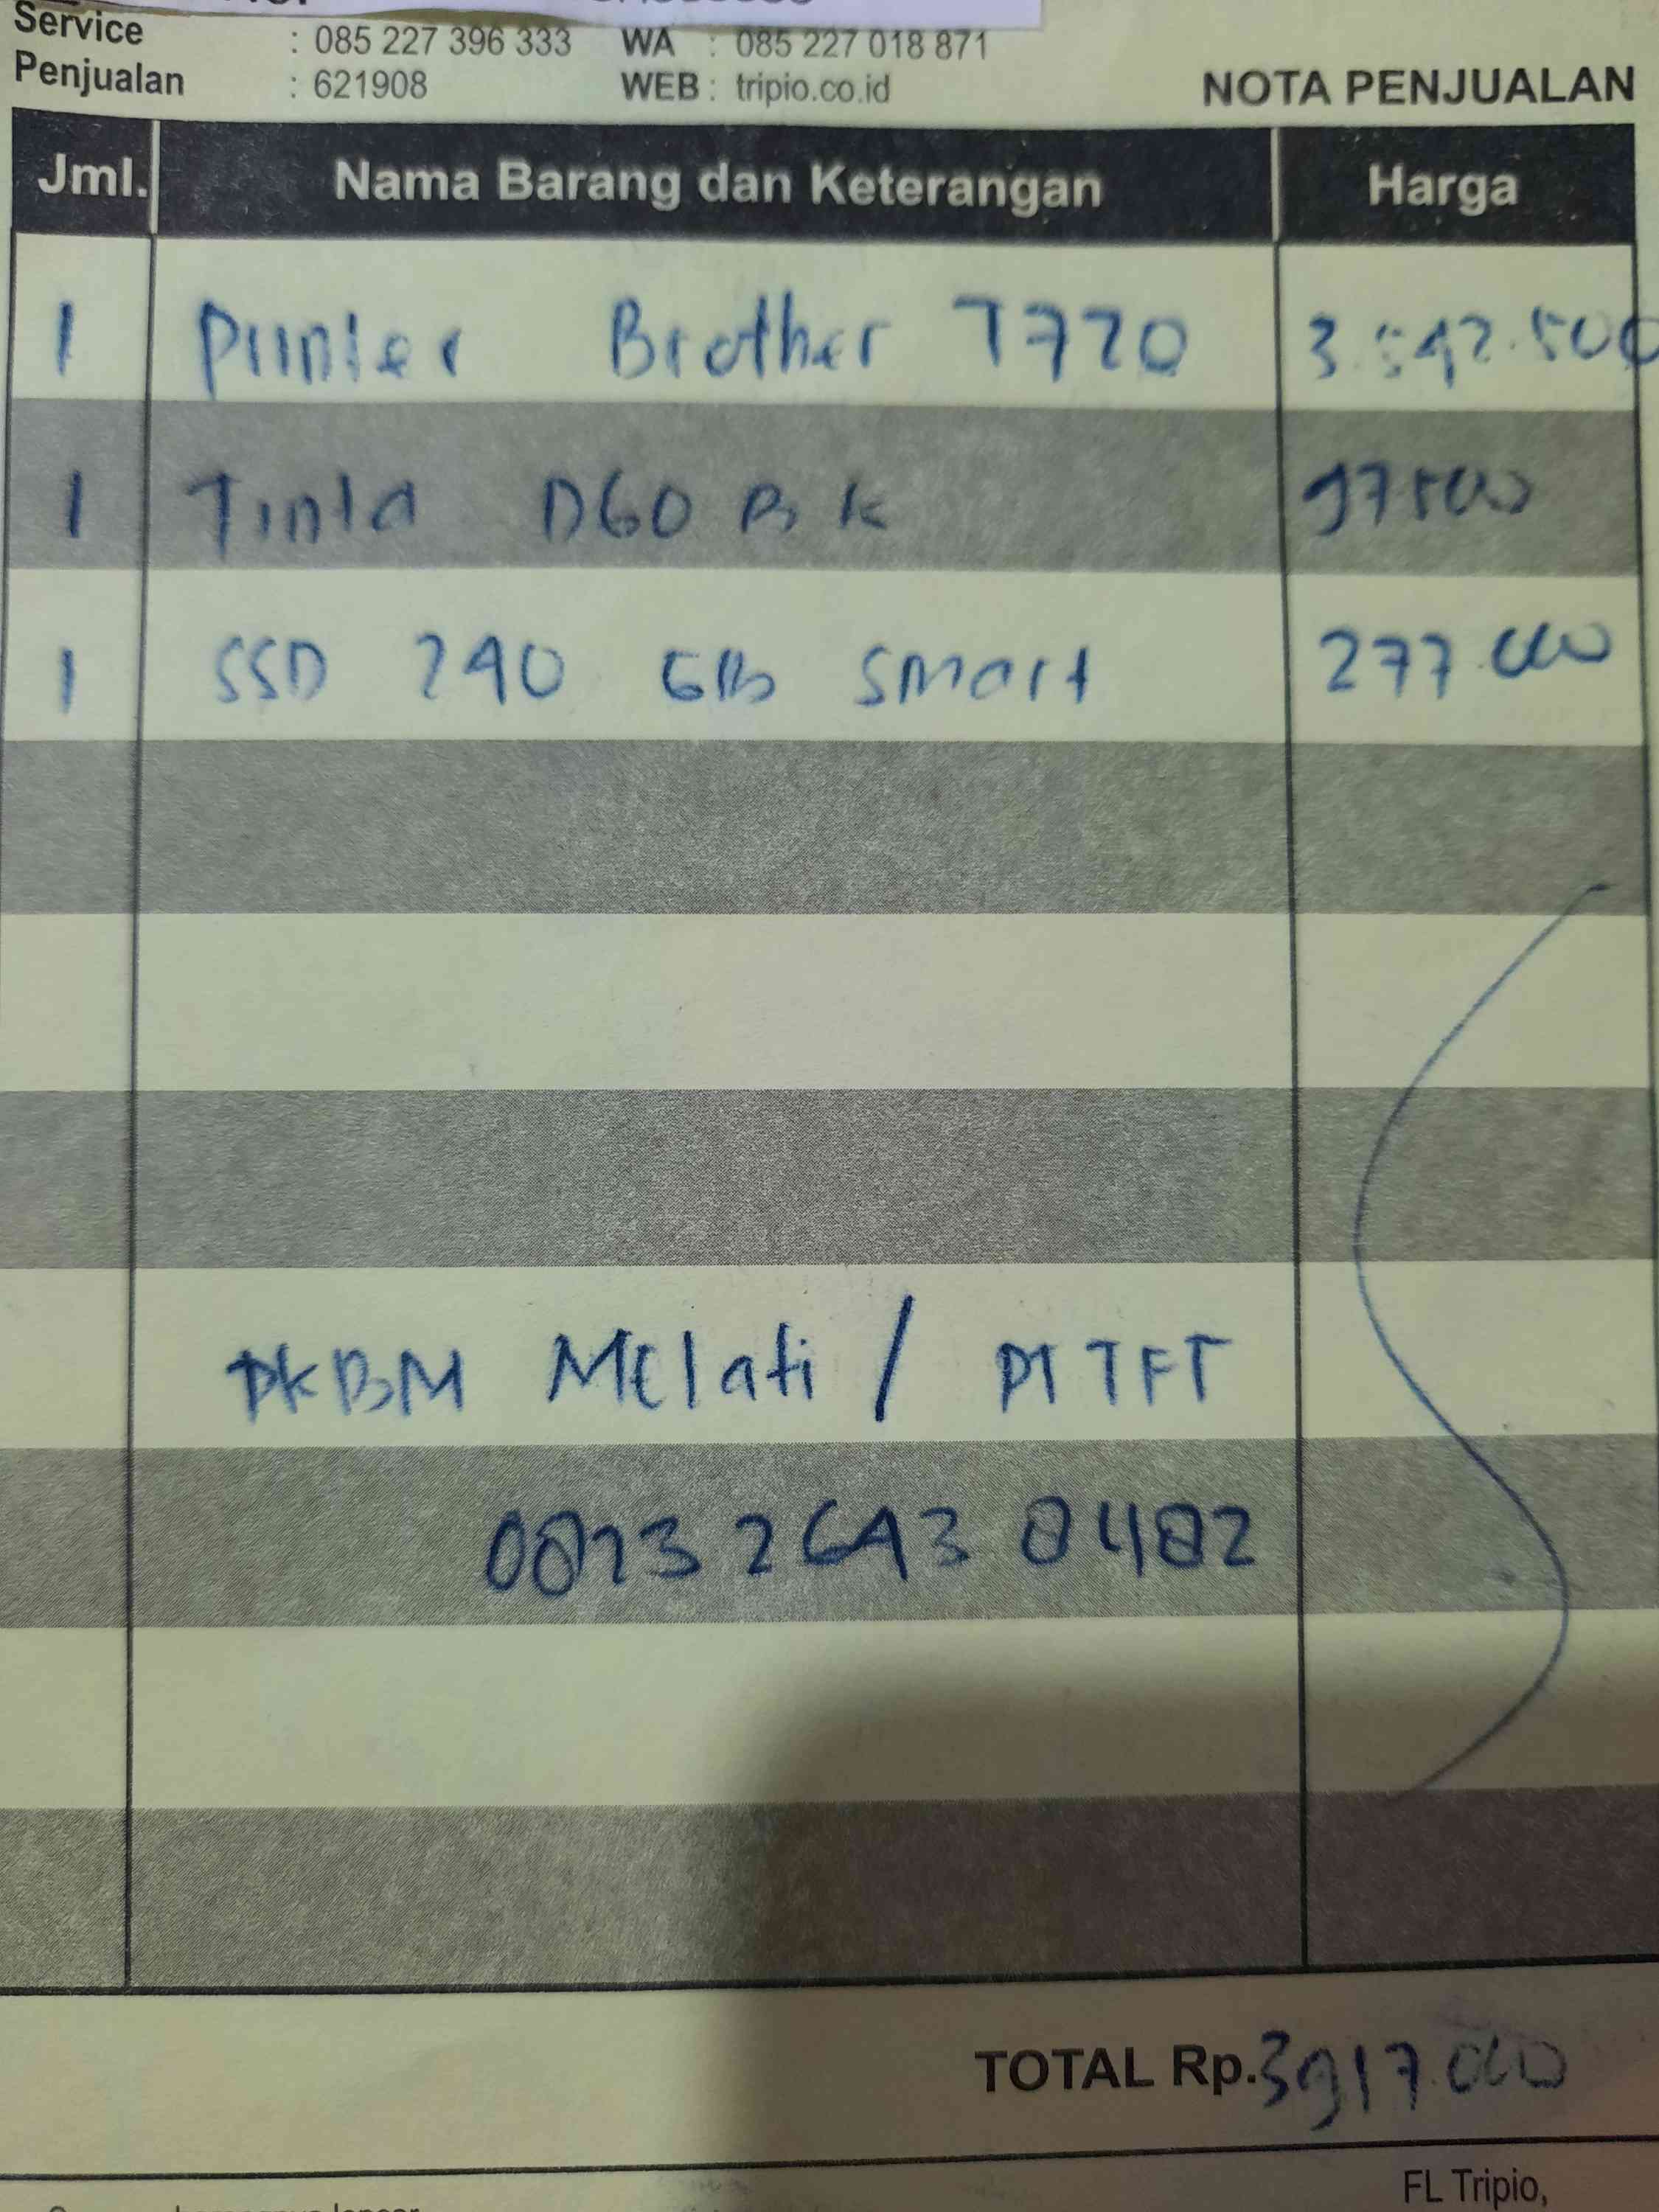 Service : 085 227 396 333 WA : 085 227 018 871
Penjualan : 621908 WEB : tripio.co.id
NOTA PENJUALAN
Jml. Nama Barang dan Keterangan Harga
1 Printer Brother T720 3.542.500
1 Tinta D60 Bk 97500
1 SSD 240 GB Smart 277.000
PKBM Melati / PT TFT
0823 2643 8482
TOTAL Rp. 3917.000
FL Tripio,